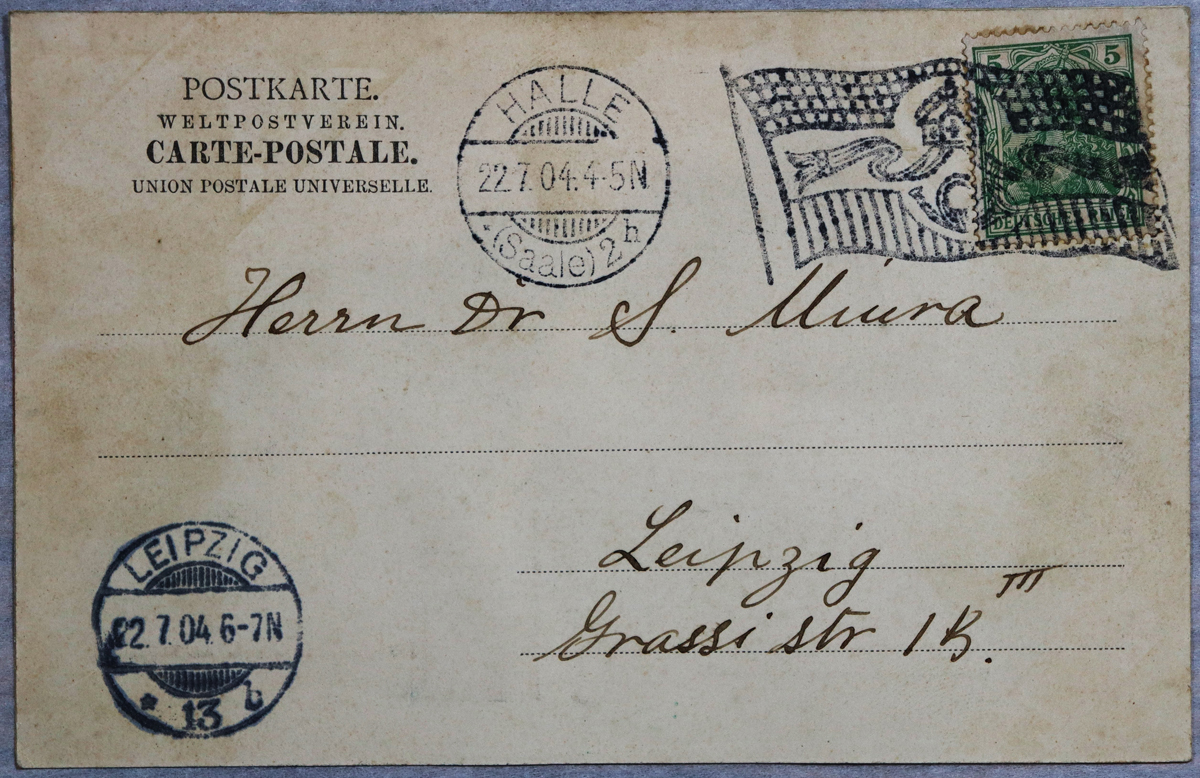 POSTKARTE.
WELTPOSTVEREIN.
CARTE-POSTALE.
UNION POSTALE UNIVERSELLE.
HALLE
22.7.04.4-5N
(Saale) 2 h
5 5
DEUTSCHES REICH
Herrn Dr S. Miura
Leipzig
Grassi str 1B. III
LEIPZIG
22.7.04.6-7N
* 13 b